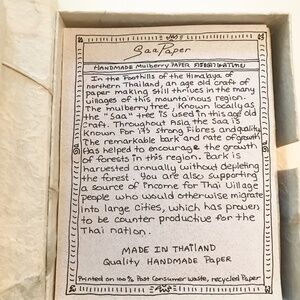 Saa Paper
HANDMADE Mulberry PAPER
In the Foothills of the Himalaya of
northern Thailand, an age old craft of
paper making still thrives in the many
villages of this mountainous region.
The mulberry tree, known locally as
the "Saa" tree is used in this age old
craft. Throughout Asia the Saa is
known for its strong Fibres and quality
The remarkable bark and rate of growth
has helped to encourage the growth
of forests in this region. Bark is
harvested annually without depleting
the forest. You are also supporting
a source of income for Thai Village
people who would otherwise migrate
into large Cities, which has proven
to be counter productive for the
Thai nation.
MADE IN THAILAND
Quality HANDMADE Paper
Printed on 100% Post Consumer Waste, recycled Paper